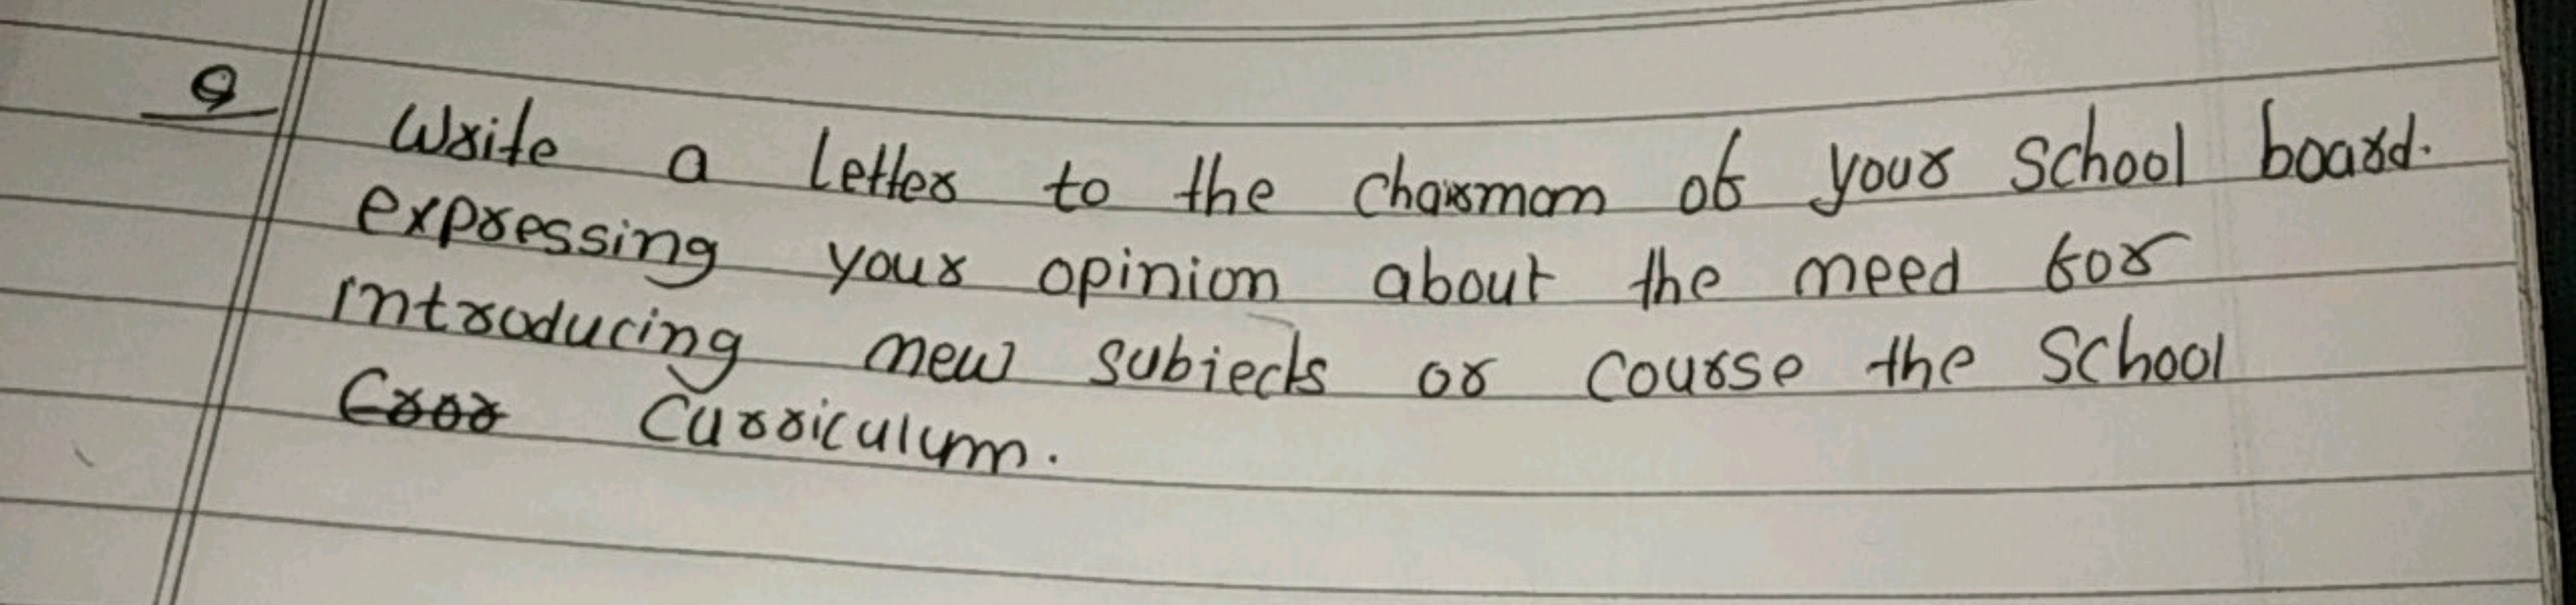 Q Write a Letter to the chairman of your School board.
expressing your opinion about the need for
introducing new subjects or course the School
Curriculum.